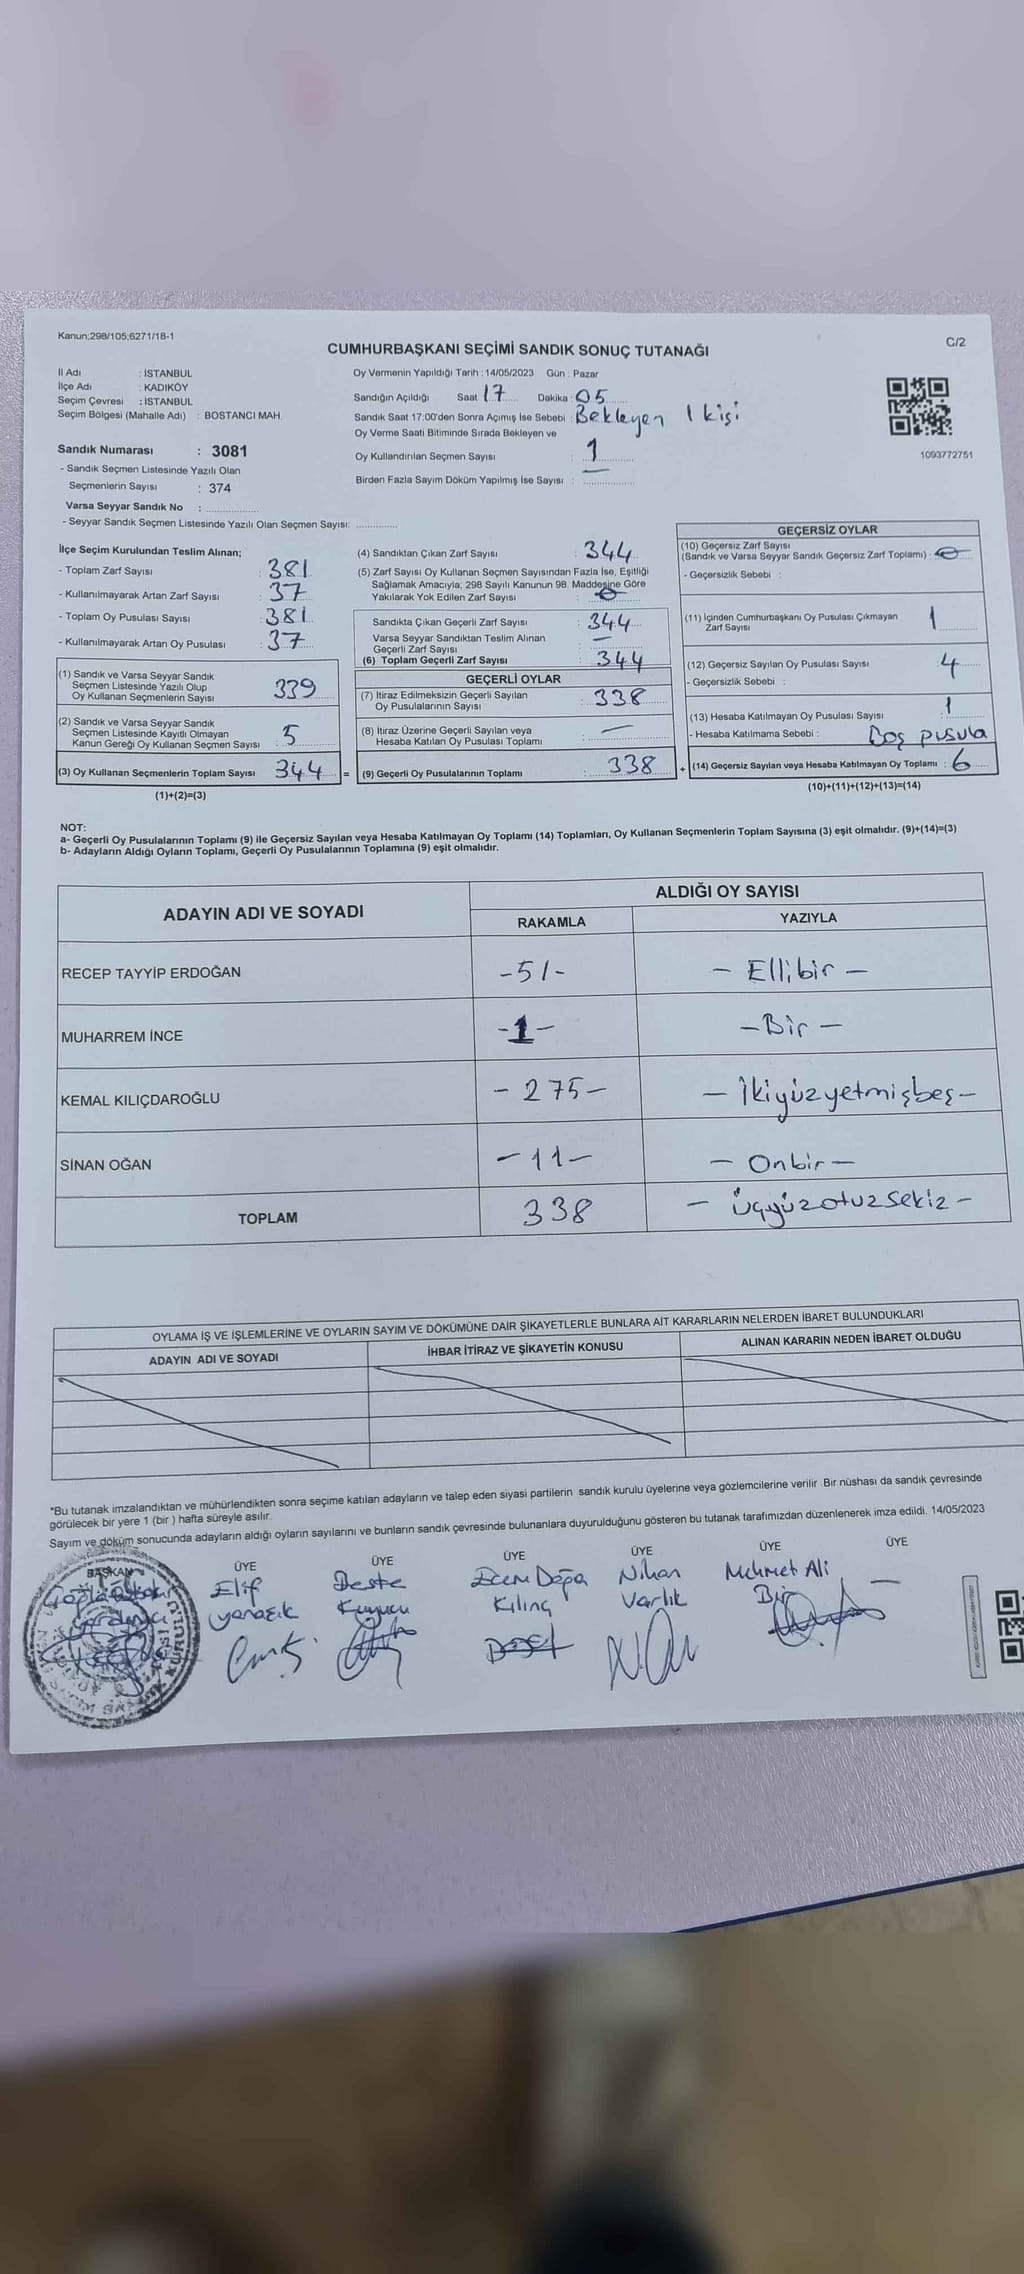 Kanun;298/105;6271/18-1
C/2
CUMHURBAŞKANI SEÇİMİ SANDIK SONUÇ TUTANAĞI
İl Adı : İSTANBUL
İlçe Adı : KADIKÖY
Seçim Çevresi : İSTANBUL
Seçim Bölgesi (Mahalle Adı) : BOSTANCI MAH.
Sandık Numarası : 3081
- Sandık Seçmen Listesinde Yazılı Olan
Seçmenlerin Sayısı : 374
Varsa Seyyar Sandık No :
- Seyyar Sandık Seçmen Listesinde Yazılı Olan Seçmen Sayısı:
Oy Vermenin Yapıldığı Tarih :14/05/2023 Gün : Pazar
Sandığın Açıldığı Saat 17 Dakika : 05
Sandık Saat 17:00'den Sonra Açımış İse Sebebi : Bekleyen 1 kişi
Oy Verme Saati Bitiminde Sırada Bekleyen ve
Oy Kullandırılan Seçmen Sayısı : 1
Birden Fazla Sayım Döküm Yapılmış İse Sayısı : —
1093772751
İlçe Seçim Kurulundan Teslim Alınan;
- Toplam Zarf Sayısı : 381
- Kullanılmayarak Artan Zarf Sayısı : 37
- Toplam Oy Pusulası Sayısı : 381
- Kullanılmayarak Artan Oy Pusulası : 37
(1) Sandık ve Varsa Seyyar Sandık
Seçmen Listesinde Yazılı Olup
Oy Kullanan Seçmenlerin Sayısı 339
(2) Sandık ve Varsa Seyyar Sandık
Seçmen Listesinde Kayıtlı Olmayan
Kanun Gereği Oy Kullanan Seçmen Sayısı : 5
(3) Oy Kullanan Seçmenlerin Toplam Sayısı 344 =
(1)+(2)=(3)
(4) Sandıktan Çıkan Zarf Sayısı : 344
(5) Zarf Sayısı Oy Kullanan Seçmen Sayısından Fazla İse, Eşitliği
Sağlamak Amacıyla; 298 Sayılı Kanunun 98. Maddesine Göre
Yakılarak Yok Edilen Zarf Sayısı : 0
Sandıkta Çıkan Geçerli Zarf Sayısı : 344
Varsa Seyyar Sandıktan Teslim Alınan
Geçerli Zarf Sayısı : —
(6) Toplam Geçerli Zarf Sayısı : 344
GEÇERLİ OYLAR
(7) İtiraz Edilmeksizin Geçerli Sayılan
Oy Pusulalarının Sayısı : 338
(8) İtiraz Üzerine Geçerli Sayılan veya
Hesaba Katılan Oy Pusulası Toplamı : —
(9) Geçerli Oy Pusulalarının Toplamı : 338 +
GEÇERSİZ OYLAR
(10) Geçersiz Zarf Sayısı
(Sandık ve Varsa Seyyar Sandık Geçersiz Zarf Toplamı) : 0
- Geçersizlik Sebebi :
(11) İçinden Cumhurbaşkanı Oy Pusulası Çıkmayan
Zarf Sayısı : 1
(12) Geçersiz Sayılan Oy Pusulası Sayısı : 4
- Geçersizlik Sebebi :
(13) Hesaba Katılmayan Oy Pusulası Sayısı : 1
- Hesaba Katılmama Sebebi : Boş pusula
(14) Geçersiz Sayılan veya Hesaba Katılmayan Oy Toplamı : 6
(10)+(11)+(12)+(13)=(14)
NOT:
a- Geçerli Oy Pusulalarının Toplamı (9) ile Geçersiz Sayılan veya Hesaba Katılmayan Oy Toplamı (14) Toplamları, Oy Kullanan Seçmenlerin Toplam Sayısına (3) eşit olmalıdır. (9)+(14)=(3)
b- Adayların Aldığı Oyların Toplamı, Geçerli Oy Pusulalarının Toplamına (9) eşit olmalıdır.
ADAYIN ADI VE SOYADI
ALDIĞI OY SAYISI
RAKAMLA YAZIYLA
RECEP TAYYİP ERDOĞAN -51- - Ellibir -
MUHARREM İNCE -1- - Bir -
KEMAL KILIÇDAROĞLU - 275 - - İkiyüzyetmişbeş -
SİNAN OĞAN - 11 - - Onbir -
TOPLAM 338 - Üçyüzotuzsekiz -
OYLAMA İŞ VE İŞLEMLERİNE VE OYLARIN SAYIM VE DÖKÜMÜNE DAİR ŞİKAYETLERLE BUNLARA AİT KARARLARIN NELERDEN İBARET BULUNDUKLARI
ADAYIN ADI VE SOYADI İHBAR İTİRAZ VE ŞİKAYETİN KONUSU ALINAN KARARIN NEDEN İBARET OLDUĞU
*Bu tutanak imzalandıktan ve mühürlendikten sonra seçime katılan adayların ve talep eden siyasi partilerin sandık kurulu üyelerine veya gözlemcilerine verilir. Bir nüshası da sandık çevresinde
görülecek bir yere 1 (bir ) hafta süreyle asılır.
Sayım ve döküm sonucunda adayların aldığı oyların sayılarını ve bunların sandık çevresinde bulunanlara duyurulduğunu gösteren bu tutanak tarafımızdan düzenlenerek imza edildi. 14/05/2023
BAŞKAN ÜYE ÜYE ÜYE ÜYE ÜYE ÜYE
Elif Deste Ecem Doğa Nihan Mehmet Ali —
Yanaşık Kuyucu Kılınç Varlık